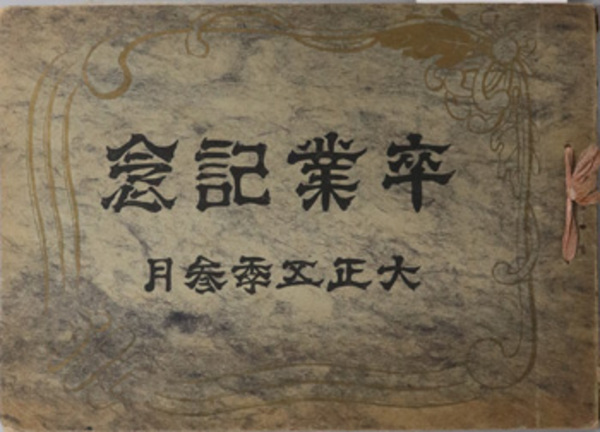 卒業記念
大正五年参月